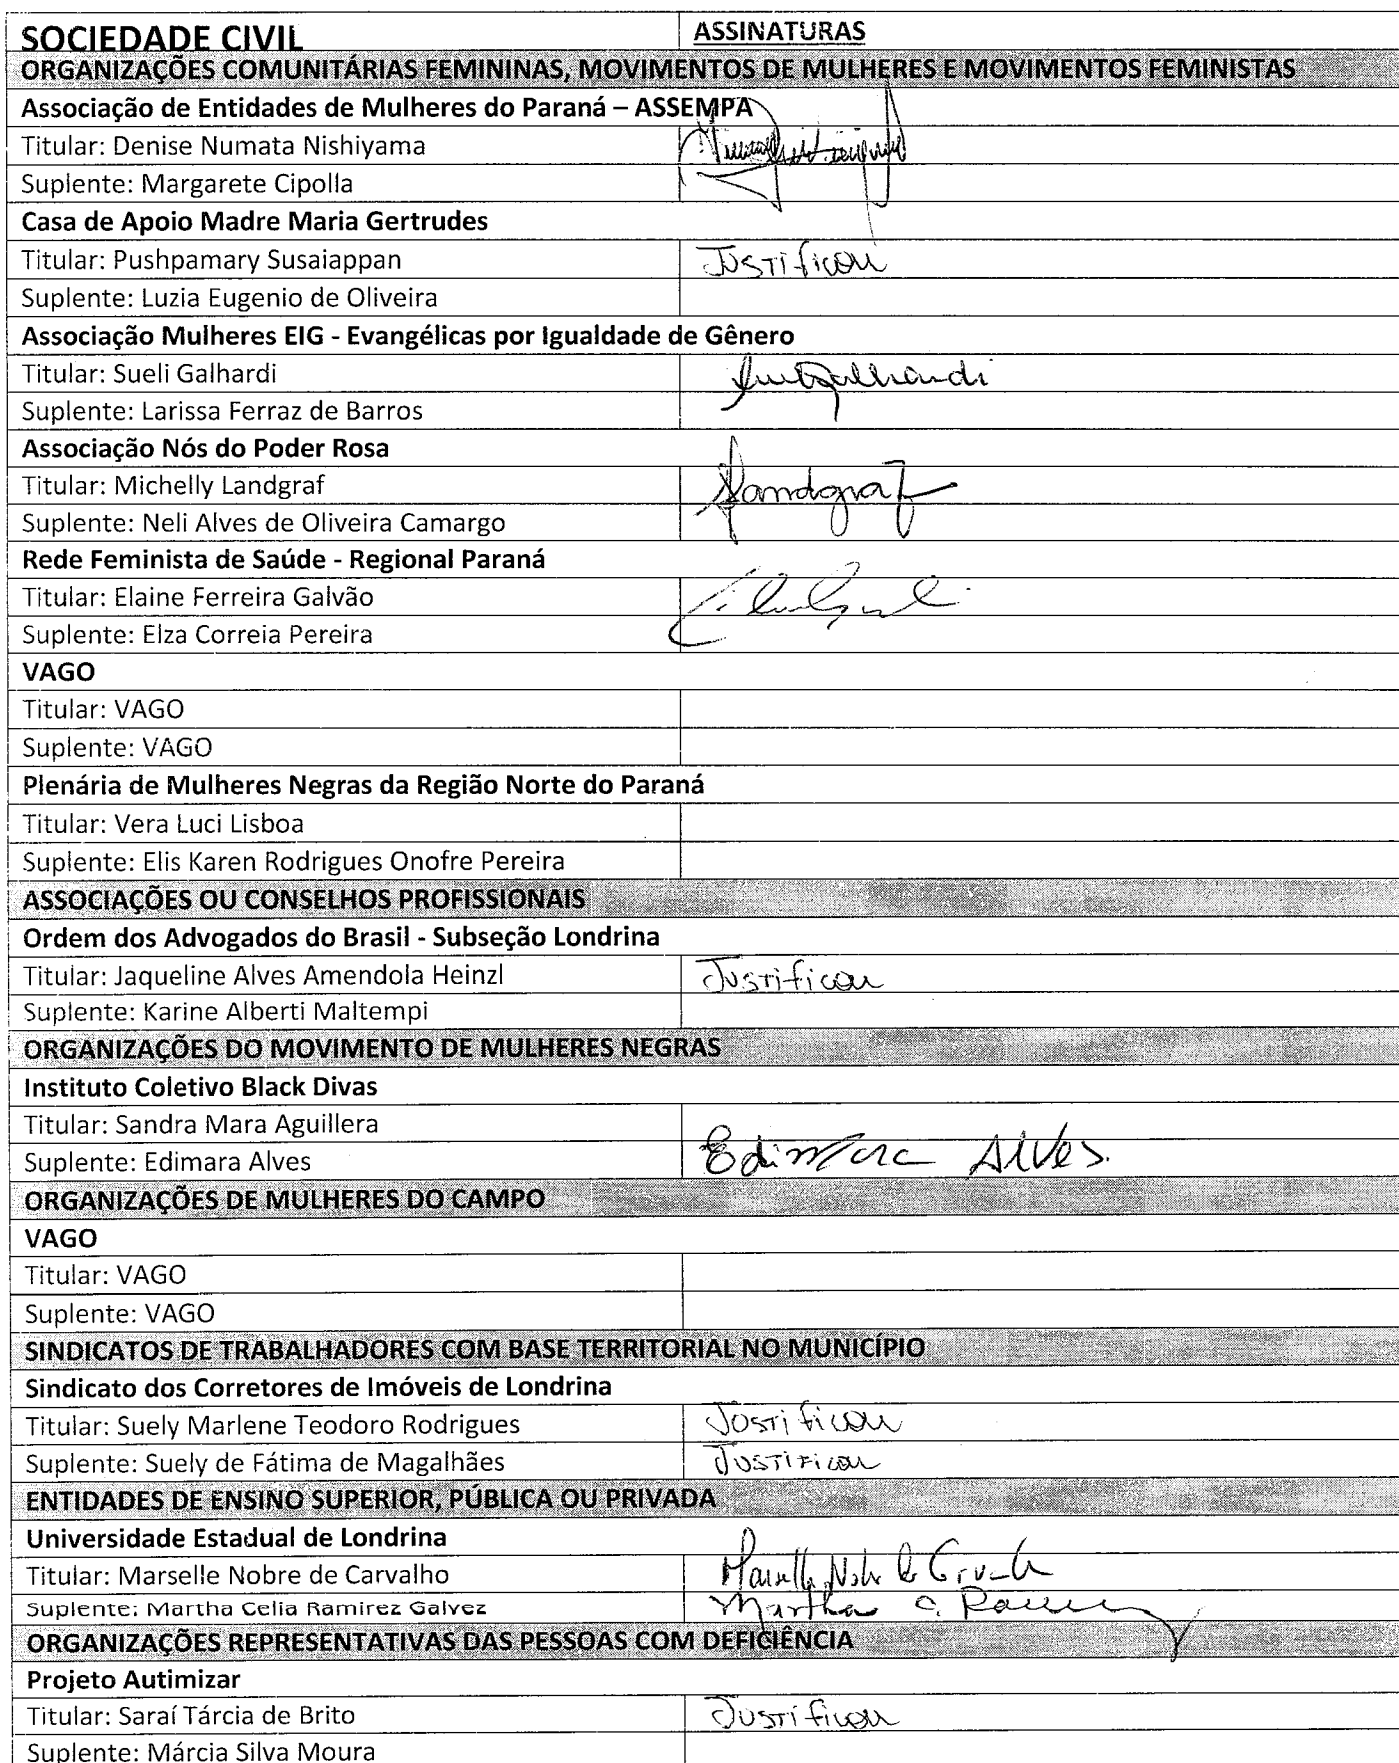 SOCIEDADE CIVIL ASSINATURAS
ORGANIZAÇÕES COMUNITÁRIAS FEMININAS, MOVIMENTOS DE MULHERES E MOVIMENTOS FEMINISTAS
Associação de Entidades de Mulheres do Paraná – ASSEMPA
Titular: Denise Numata Nishiyama
Suplente: Margarete Cipolla
Casa de Apoio Madre Maria Gertrudes
Titular: Pushpamary Susaiappan Justificou
Suplente: Luzia Eugenio de Oliveira
Associação Mulheres EIG - Evangélicas por Igualdade de Gênero
Titular: Sueli Galhardi
Suplente: Larissa Ferraz de Barros
Associação Nós do Poder Rosa
Titular: Michelly Landgraf Landgraf
Suplente: Neli Alves de Oliveira Camargo
Rede Feminista de Saúde - Regional Paraná
Titular: Elaine Ferreira Galvão
Suplente: Elza Correia Pereira
VAGO
Titular: VAGO
Suplente: VAGO
Plenária de Mulheres Negras da Região Norte do Paraná
Titular: Vera Luci Lisboa
Suplente: Elis Karen Rodrigues Onofre Pereira
ASSOCIAÇÕES OU CONSELHOS PROFISSIONAIS
Ordem dos Advogados do Brasil - Subseção Londrina
Titular: Jaqueline Alves Amendola Heinzl Justificou
Suplente: Karine Alberti Maltempi
ORGANIZAÇÕES DO MOVIMENTO DE MULHERES NEGRAS
Instituto Coletivo Black Divas
Titular: Sandra Mara Aguillera
Suplente: Edimara Alves Edimara Alves
ORGANIZAÇÕES DE MULHERES DO CAMPO
VAGO
Titular: VAGO
Suplente: VAGO
SINDICATOS DE TRABALHADORES COM BASE TERRITORIAL NO MUNICÍPIO
Sindicato dos Corretores de Imóveis de Londrina
Titular: Suely Marlene Teodoro Rodrigues Justificou
Suplente: Suely de Fátima de Magalhães Justificou
ENTIDADES DE ENSINO SUPERIOR, PÚBLICA OU PRIVADA
Universidade Estadual de Londrina
Titular: Marselle Nobre de Carvalho
Suplente: Martha Celia Ramirez Galvez Martha C.
ORGANIZAÇÕES REPRESENTATIVAS DAS PESSOAS COM DEFICIÊNCIA
Projeto Autimizar
Titular: Saraí Tárcia de Brito Justificou
Suplente: Márcia Silva Moura